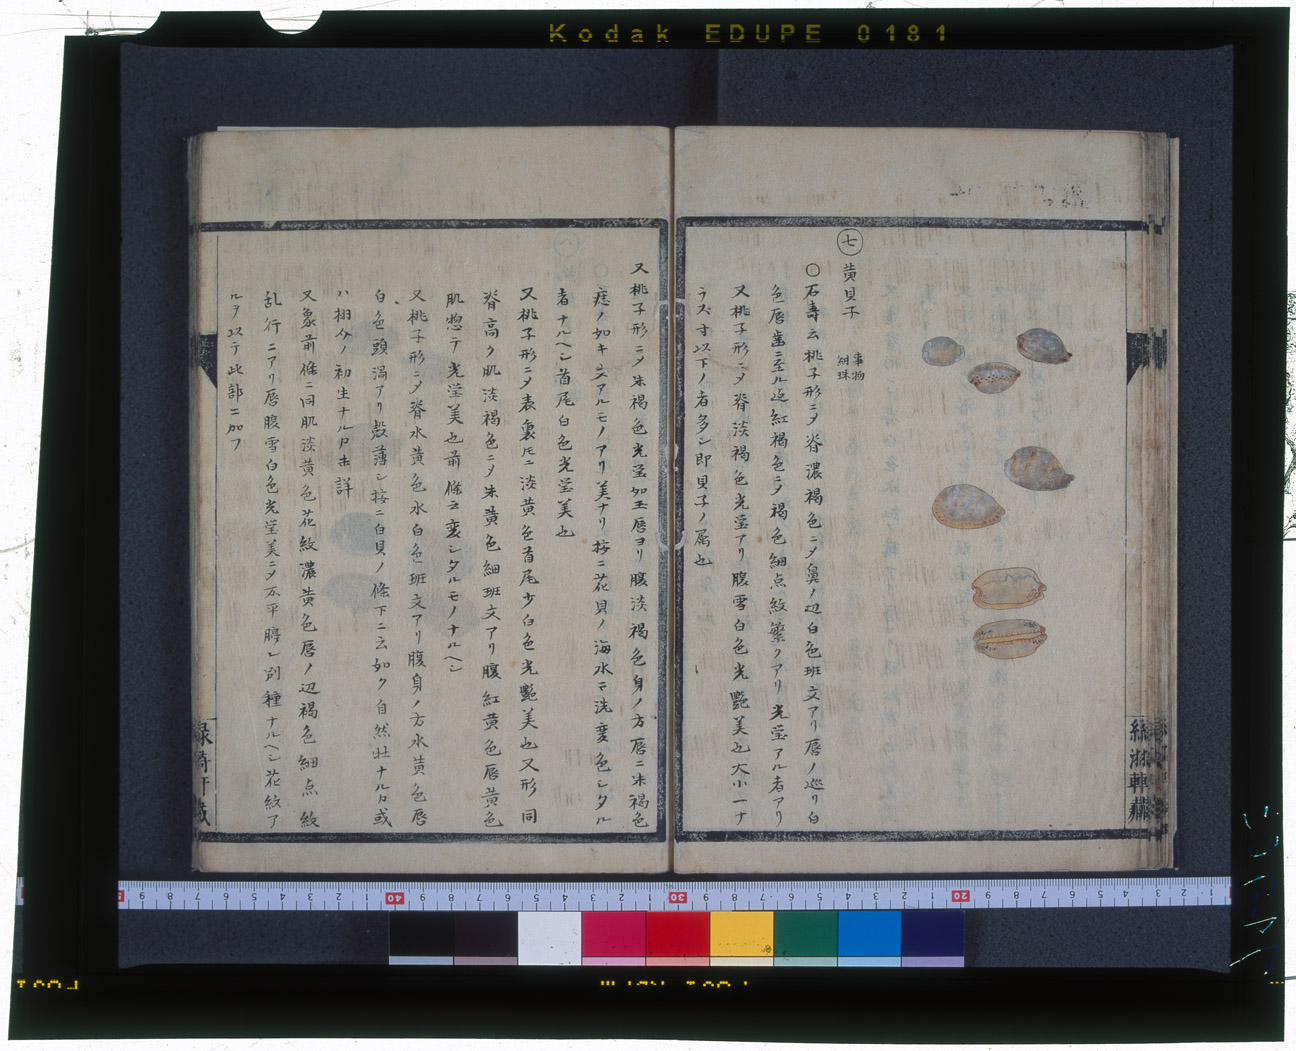 Kodak EDUPE 0181
七 黄貝子 事物紺珠
○石壽云桃子形ニメ脊濃褐色ニメ鼻ノ辺白色斑文アリ唇ノ巡リ白
色唇歯ニ至ル迠紅褐色ニメ褐色細点紋繁クアリ光瑩アル者アリ
又桃子形ニメ脊淡褐色光瑩アリ腹雪白色光艶美也大小一ナ
ラズ寸以下ノ者多シ即貝子ノ属也
又桃子形ニメ朱褐色光瑩如玉唇ヨリ腹淡褐色身ノ方唇ニ朱褐色
痣ノ如キ文アルモノアリ美ナリ按ニ花貝ノ海水ニ洗変色シタル
者ナルヘシ首尾白色光瑩美也
又桃子形ニメ表裏𪜈ニ淡黄色首尾少白色光艶美也又形同
脊高ク肌淡褐色ニメ朱黄色細斑文アリ腹紅黄色唇黄色
肌惣テ光瑩美也前條ニ変シタルモノナルヘシ
又桃子形ニメ脊水黄色水白色斑文アリ腹身ノ方水黄色唇
白色頭濶アリ殻薄シ按ニ白貝ノ條下ニ云如ク自然壮ナルカ或
ハ栩介ノ初生ナルカ未詳
又象前條ニ同肌淡黄色花紋濃黄色唇ノ辺褐色細点紋
乱行ニアリ唇腹雪白色光瑩美ニメ太平膨シ別種ナルヘシ花紋ア
ルヲ以テ此部ニ加フ